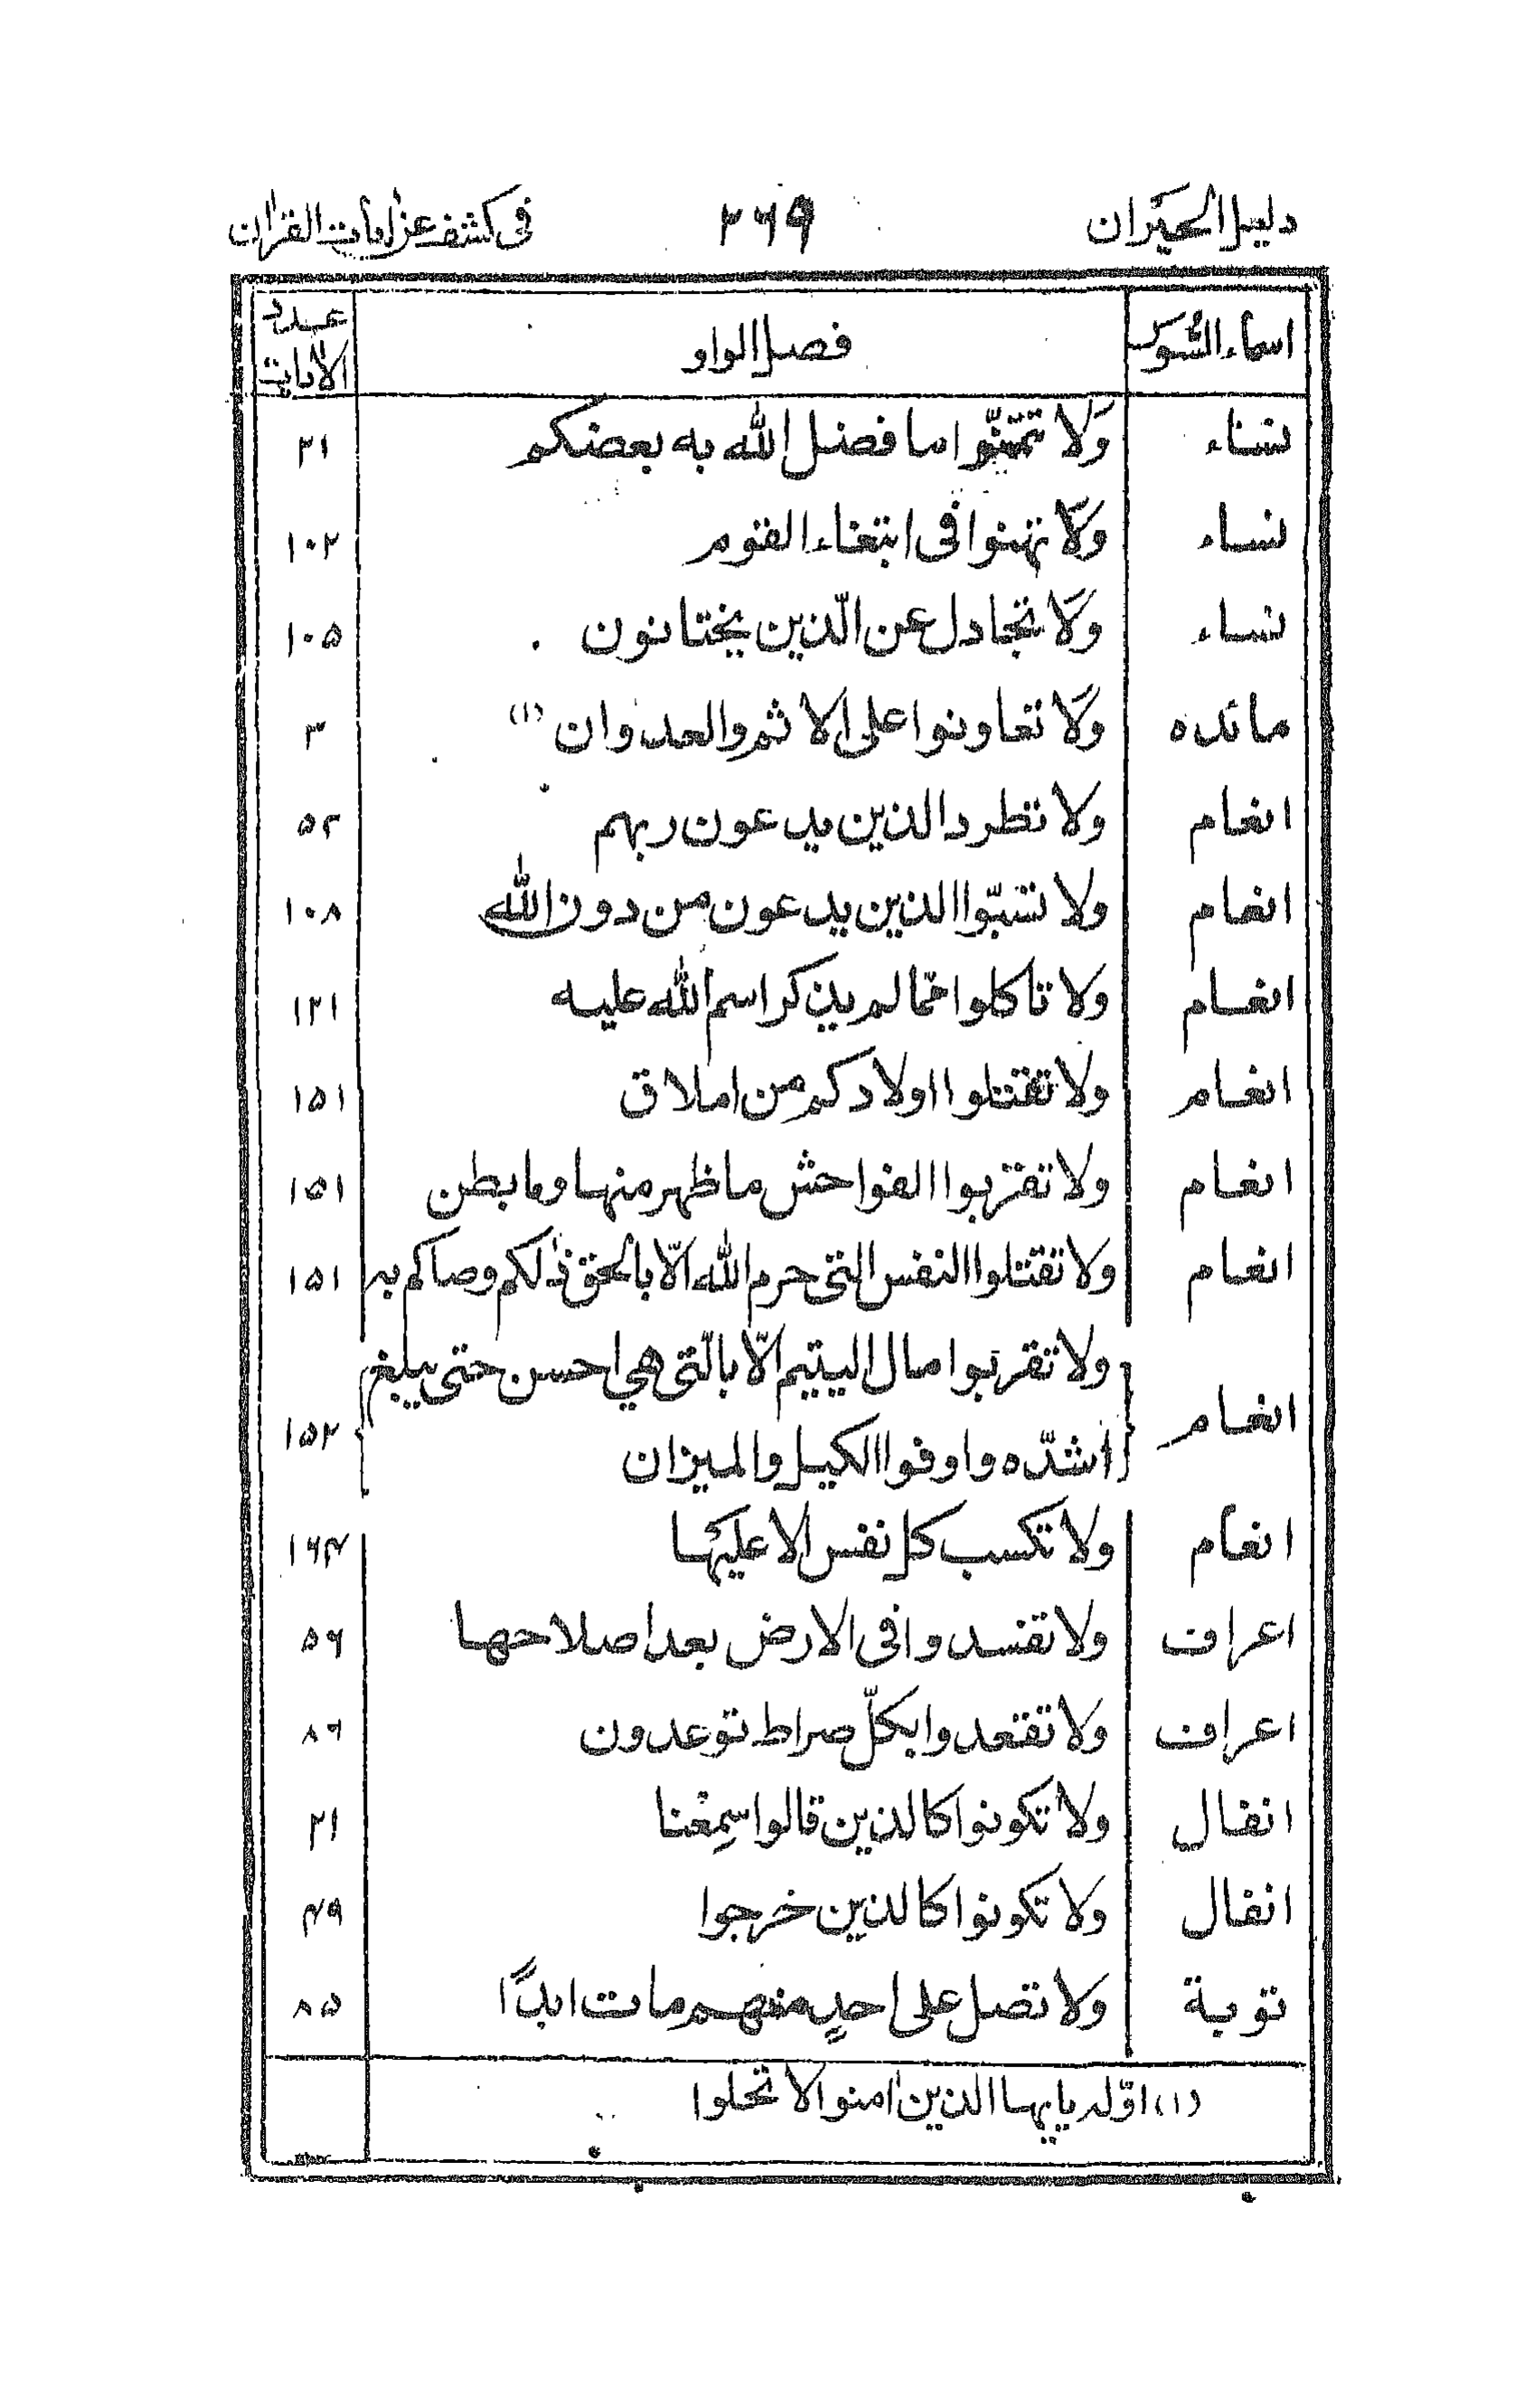 دليل الحيران ٣٦٩ فى كشف عن اٰيات القراٰن
اسماء السّور فصل الواو عدد الاٰيات
نساء وَلا تتمنّوا ما فضل الله به بعضكم ٣١
نساء وَلا تهنوا فى ابتغاء القوم ١٠٢
نساء وَلا تجادل عن الّذين يختانون ١٠٥
مائده وَلا تعاونوا على الاثم والعدوان (١) ٣
انعام ولا تطرد الذين يدعون ربهم ٥٢
انعام ولا تسبّوا الذين يدعون من دون الله ١٠٨
انعام ولا تاكلوا ممّا لم يذكر اسم الله عليه ١٢١
انعام ولا تقتلوا اولادكم من املاق ١٥١
انعام ولا تقربوا الفواحش ما ظهر منها وما بطن ١٥١
انعام ولا تقتلوا النفس التى حرم الله الّا بالحق ذٰلكم وصاكم به ١٥١
انعام ولا تقربوا مال اليتيم الّا بالّتى هي احسن حتى يبلغ
اشدّه واوفوا الكيل والميزان ١٥٢
انعام ولا تكسب كل نفس الا عليها ١٦٤
اعراف ولا تفسدوا فى الارض بعد اصلاحها ٥٦
اعراف ولا تقعدوا بكلّ صراط توعدون ٨٦
انفال ولا تكونوا كالذين قالوا سمِعْنا ٢١
انفال ولا تكونوا كالذين خرجوا ٤٩
توبة ولا تصل على احدٍ منهم مات ابدًا ٨٥
(١) اوّله يايها الذين اٰمنوا لا تحلوا